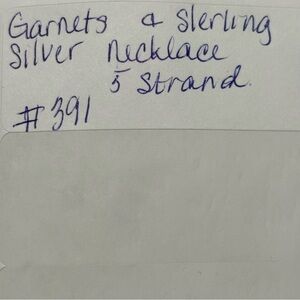 Garnets & Sterling
Silver Necklace
5 Strand.
#391